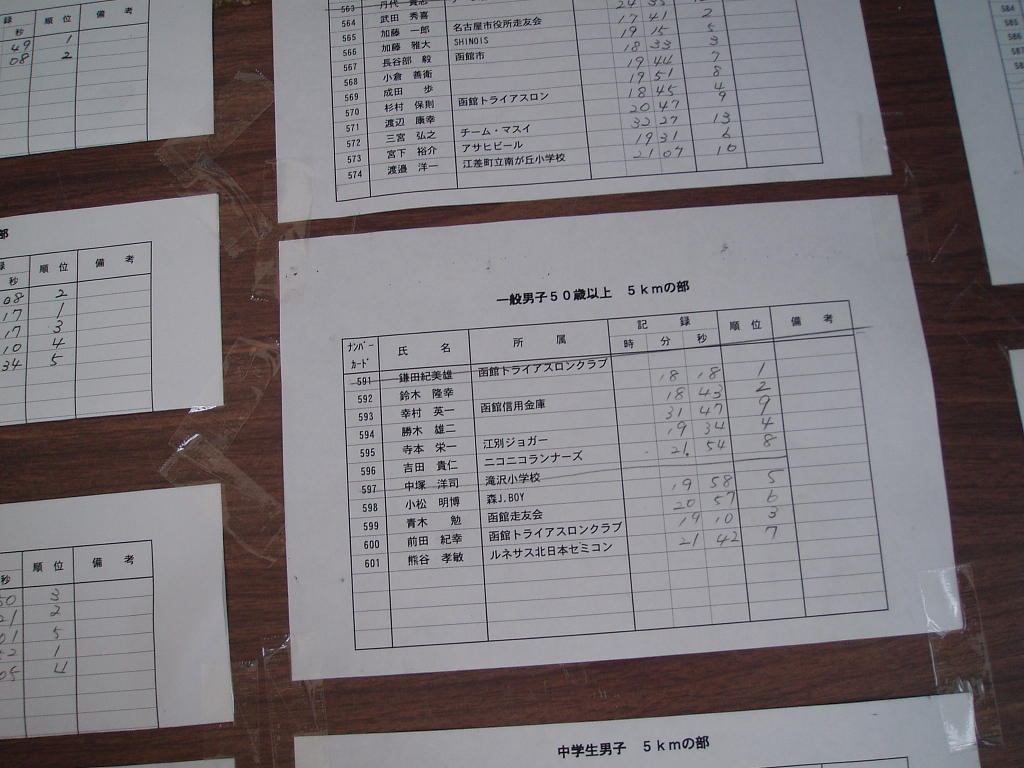 録 順位 備考
秒
49 1
08 2
部
録 順位 備考
秒
08 2
17 1
17 3
10 4
34 5
順位 備考
秒
50 3
21 2
01 5
52 1
05 4
563
564 武田 秀喜 17 41 2
565 加藤 一郎 名古屋市役所走友会 19 15 5
566 加藤 雅大 SHINOIS 18 33 3
567 長谷部 毅 函館市 19 44 7
568 小倉 善衛 19 51 8
569 成田 歩 18 45 4
570 杉村 保則 函館トライアスロン 20 47 9
571 渡辺 康幸 32 27 13
572 三宮 弘之 チーム・マスイ 19 31 6
573 宮下 裕介 アサヒビール 21 07 10
574 渡邉 洋一 江差町立南が丘小学校
一般男子50歳以上 5kmの部
ナンバーカード 氏名 所属 記録 順位 備考
時 分 秒
591 鎌田紀美雄 函館トライアスロンクラブ
592 鈴木 隆幸 18 18 1
593 幸村 英一 函館信用金庫 18 43 2
594 勝木 雄二 31 47 9
595 寺本 栄一 江別ジョガー 19 34 4
596 吉田 貴仁 ニコニコランナーズ 21 54 8
597 中塚 洋司 滝沢小学校
598 小松 明博 森J.BOY 19 58 5
599 青木 勉 函館走友会 20 57 6
600 前田 紀幸 函館トライアスロンクラブ 19 10 3
601 熊谷 孝敏 ルネサス北日本セミコン 21 42 7
中学生男子 5kmの部
584
585
586
587